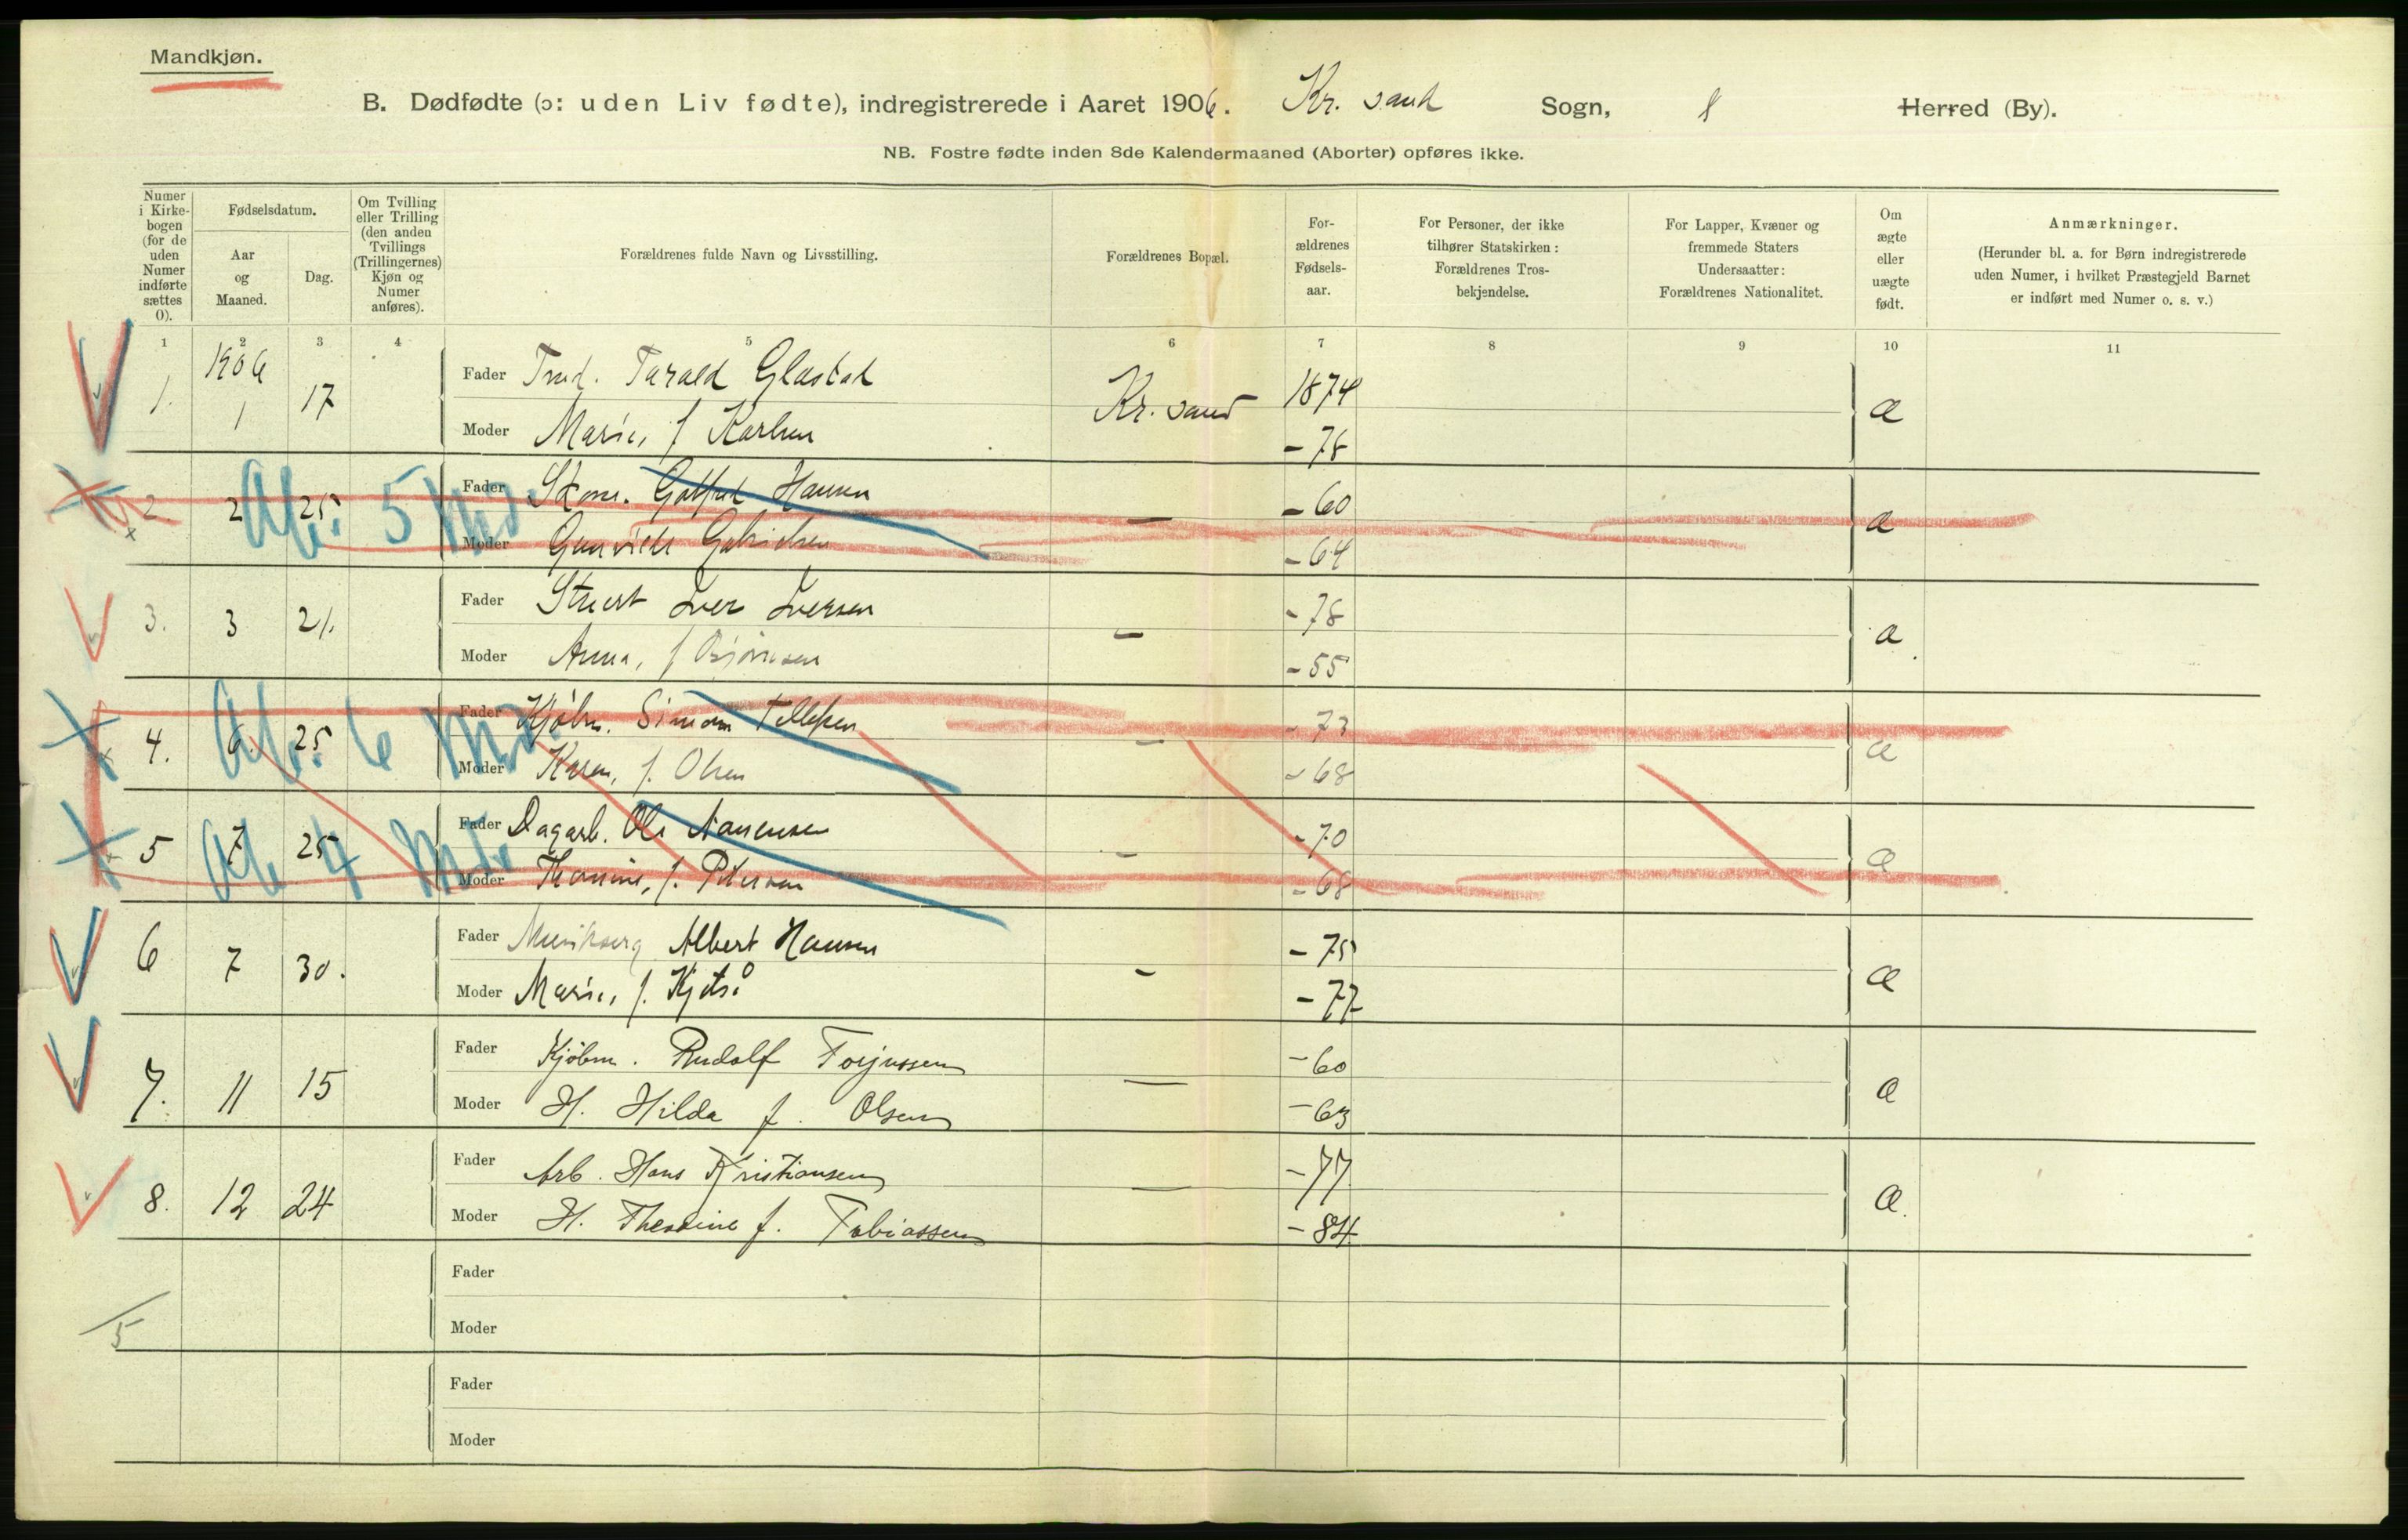 Mandkjøn.
B. Dødfødte (ɔ: uden Liv fødte), indregistrerede i Aaret 1906. Kr. sand Sogn, Herred (By).
NB. Fostre fødte inden 8de Kalendermaaned (Aborter) opføres ikke.
Numer i Kirkebogen (for de uden Numer indførte sættes 0).
Fødselsdatum.
Aar og Maaned.
Dag.
Om Tvilling eller Trilling (den anden Tvillings (Trillingernes) Kjøn og Numer anføres).
Forældrenes fulde Navn og Livsstilling.
Forældrenes Bopæl.
For-ældrenes Fødsels-aar.
For Personer, der ikke tilhører Statskirken: Forældrenes Tros-bekjendelse.
For Lapper, Kvæner og fremmede Staters Undersaatter: Forældrenes Nationalitet.
Om ægte eller uægte født.
Anmærkninger.
(Herunder bl. a. for Børn indregistrerede uden Numer, i hvilket Præstegjeld Barnet er indført med Numer o. s. v.)
1 2 3 4 5 6 7 8 9 10 11
1. 1906 1 17 Fader Tarald Glastad Kr. sand 1874 æ
Moder Marie, f. Karlsen - 78
2 2 25 Ab. 5 Md. Fader Hansen — - 60 æ
Moder Gabrielsen - 64
3. 3 21. Fader Iver Iversen — - 78 æ
Moder Anna, f. - 55
4. 6. 25 Ab. 6 Md. Fader Kjøbm. Simon Tellefsen — - 73 æ
Moder Karen, f. Olsen - 68
5 7 25 Ab 4 Md. Fader Dagarb. Ole — - 70 æ
Moder f. Petersen - 68
6 7 30. Fader Albert Hansen — - 75 æ
Moder Marie, f. - 77
7. 11 15 Fader Kjøbm. Rudolf Torjussen — - 60 æ
Moder H. Hilda f. Olsen - 63
8. 12 24 Fader Arb. Hans Kristiansen — - 77 æ
Moder H. f. Tobiassen - 84
Fader
5 Moder
Fader
Moder